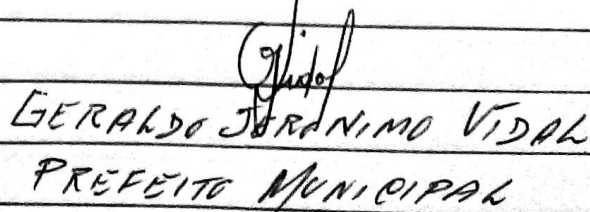 GERALDO JERONIMO VIDAL
PREFEITO MUNICIPAL